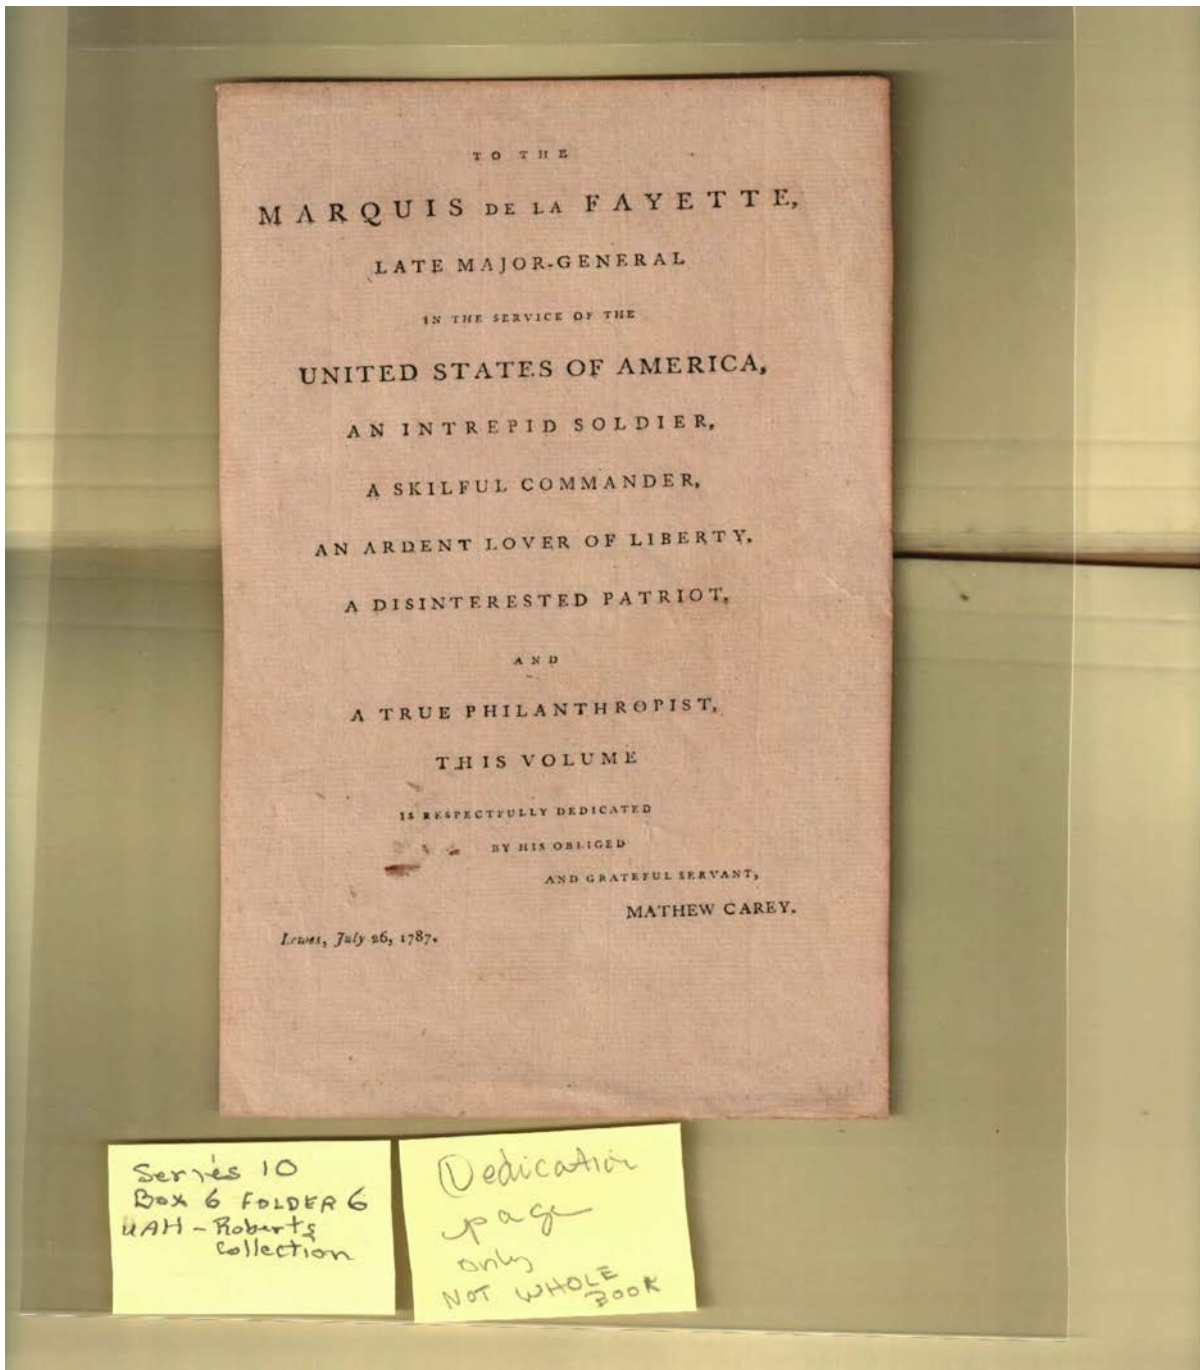 TO THE
MARQUIS DE LA FAYETTE,
LATE MAJOR-GENERAL
IN THE SERVICE OF THE
UNITED STATES OF AMERICA,
AN INTREPID SOLDIER,
A SKILFUL COMMANDER,
AN ARDENT LOVER OF LIBERTY,
A DISINTERESTED PATRIOT,
AND
A TRUE PHILANTHROPIST,
THIS VOLUME
IS RESPECTFULLY DEDICATED
BY HIS OBLIGED
AND GRATEFUL SERVANT,
MATHEW CAREY.
Lewes, July 26, 1787.
Series 10
Box 6 FOLDER 6
UAH - Roberts
Collection
Dedication
page
only
NOT WHOLE
BOOK